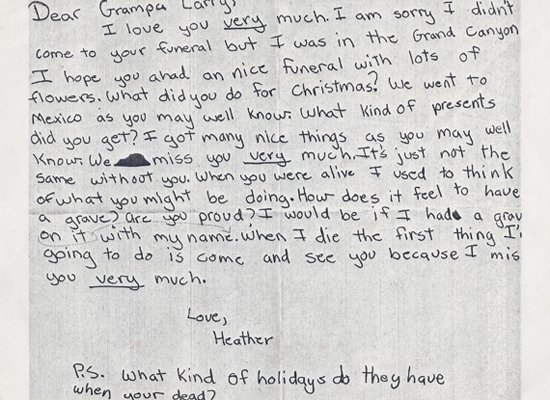 Dear Grampa Larry,
I love you very much. I am sorry I didn't
come to your funeral but I was in the Grand Canyon
I hope you ahad an nice funeral with lots of
flowers. What did you do for Christmas? We went to
Mexico as you may well know. What kind of presents
did you get? I got many nice things as you may well
know. We miss you very much. It's just not the
same without you. When you were alive I used to think
of what you might be doing. How does it feel to have
a grave? are you proud? I would be if I had a grav
on it with my name. When I die the first thing I'
going to do is come and see you because I mis
you very much.
Love,
Heather
P.S. What kind of holidays do they have
when your dead?